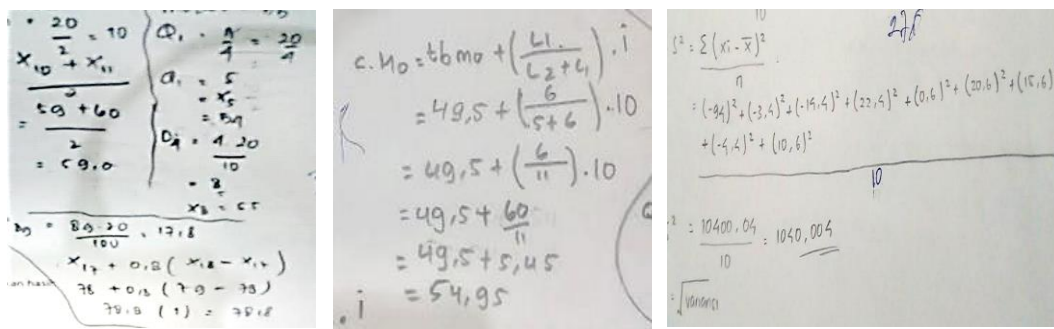 20/2 = 10
x₁₀ + x₁₁
= 59 + 60 / 2
= 59.0
Q₁ = n/4 = 20/4
Q₁ = 5
= x₅
D₄ = 4.20/10
= 8
x₈ = 55
= 89.20/100 = 17,8
x₁₇ + 0,8 (x₁₈ - x₁₇)
78,8 (1) = 78,8
c. Mo = tb mo + (L1. / L2+L1) . i
= 49,5 + (6 / 5+6) . 10
= 49,5 + (6/11) . 10
= 49,5 + 60/11
= 49,5 + 5,45
= 54,95
. i
10
S² = Σ(xi - x̄)² / n
= (-94)² + (-3,4)² + (-19,4)² + (22,4)² + (0,6)² + (20,6)² + (15,6)
+ (-4,4)² + (10,6)²
10
² = 10400,04 / 10 = 1040,004
= √variansi